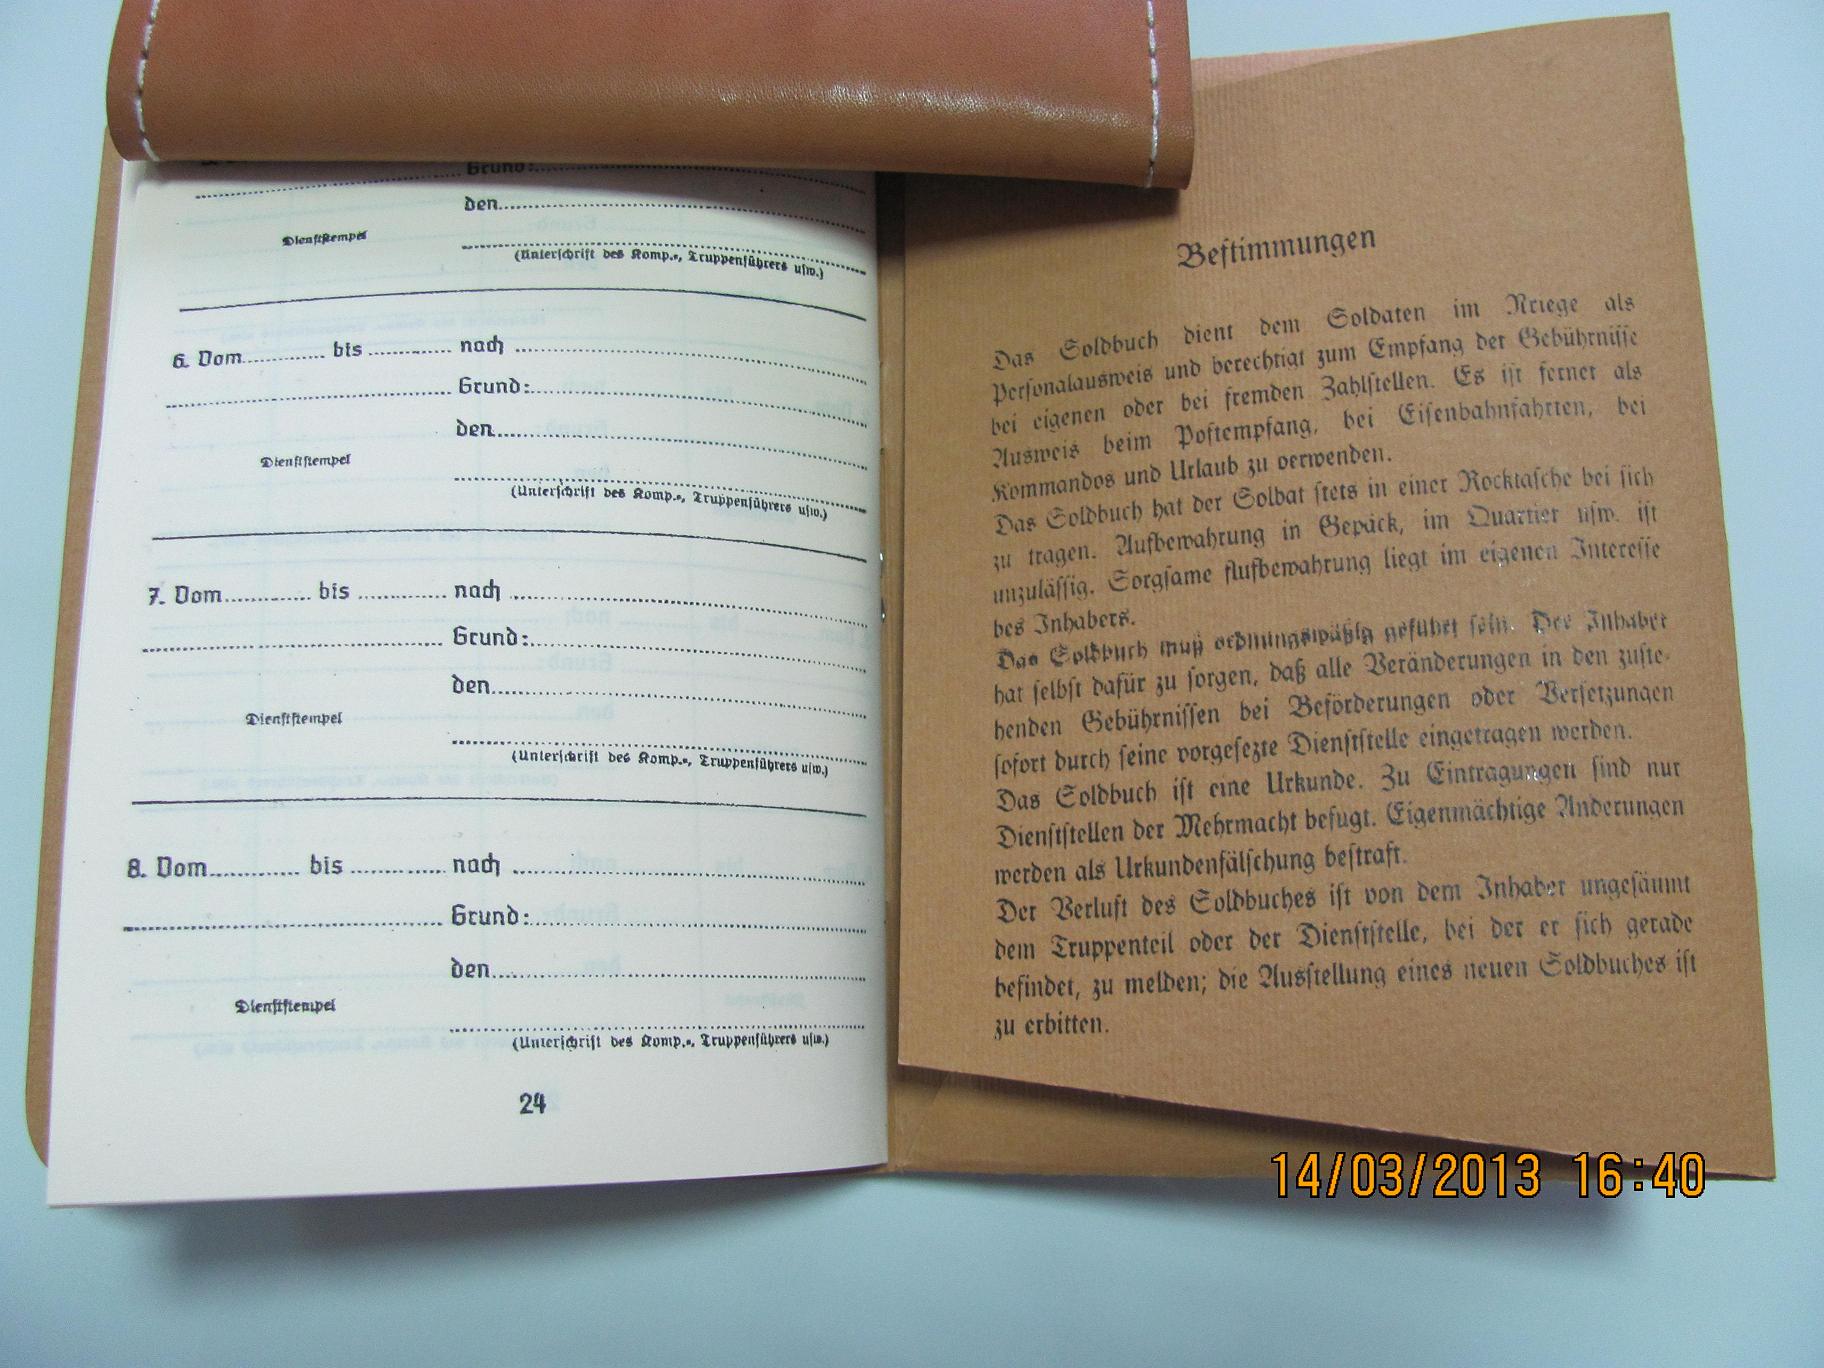 Grund:
den
Dienststempel
(Unterschrift des Komp.-, Truppenführers usw.)
6. Vom ............ bis ............ nach ............
............ Grund: ............
den ............
Dienststempel
(Unterschrift des Komp.-, Truppenführers usw.)
7. Vom ............ bis ............ nach ............
............ Grund: ............
den ............
Dienststempel
(Unterschrift des Komp.-, Truppenführers usw.)
8. Vom ............ bis ............ nach ............
............ Grund: ............
den ............
Dienststempel
(Unterschrift des Komp.-, Truppenführers usw.)
24
Bestimmungen
Das Soldbuch dient dem Soldaten im Kriege als
Personalausweis und berechtigt zum Empfang der Gebührnisse
bei eigenen oder bei fremden Zahlstellen. Es ist ferner als
Ausweis beim Postempfang, bei Eisenbahnfahrten, bei
Kommandos und Urlaub zu verwenden.
Das Soldbuch hat der Soldat stets in einer Rocktasche bei sich
zu tragen. Aufbewahrung in Gepäck, im Quartier usw. ist
unzulässig. Sorgsame Aufbewahrung liegt im eigenen Interesse
des Inhabers.
Das Soldbuch muß ordnungsmäßig geführt sein. Der Inhaber
hat selbst dafür zu sorgen, daß alle Veränderungen in den zuste-
henden Gebührnissen bei Beförderungen oder Versetzungen
sofort durch seine vorgesezte Dienststelle eingetragen werden.
Das Soldbuch ist eine Urkunde. Zu Eintragungen sind nur
Dienststellen der Wehrmacht befugt. Eigenmächtige Änderungen
werden als Urkundenfälschung bestraft.
Der Verlust des Soldbuches ist von dem Inhaber ungesäumt
dem Truppenteil oder der Dienststelle, bei der er sich gerade
befindet, zu melden; die Ausstellung eines neuen Soldbuches ist
zu erbitten.
14/03/2013 16:40